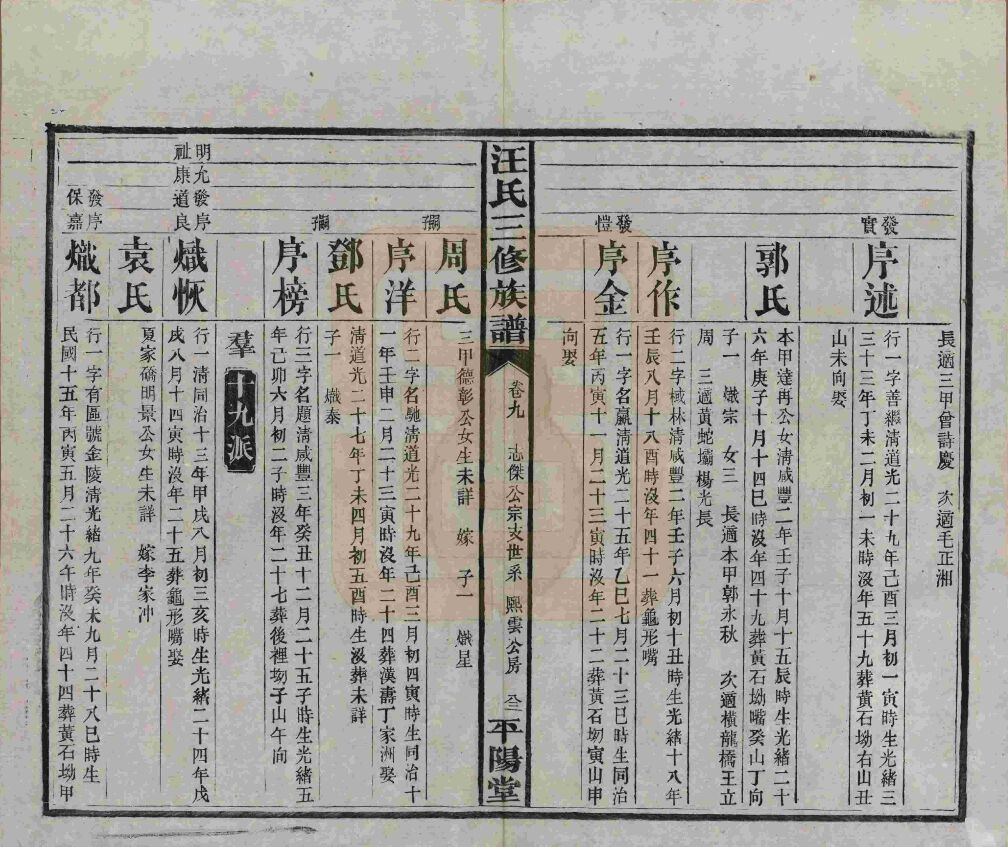 長適三甲曾詩慶　次適毛正湘
發實
序述
行一字善繼清道光二十九年己酉三月初一寅時生光緒三
三十三年丁未二月初一未時沒年五十九葬黃石坳右山丑
山未向娶
郭氏
本甲達再公女清咸豐二年壬子十月十五辰時生光緒二十
六年庚子十月十四巳時沒年四十九葬黃石坳嘴癸山丁向
子一　熾宗　女三　長適本甲郭永秋　次適橫龍橋王立
周　三適黃蛇壩楊光長
序作
行二字棫林清咸豐二年壬子六月初十丑時生光緒十八年
壬辰八月十八酉時沒年四十一葬龜形嘴
發愷
序金
行一字名贏清道光二十五年乙巳七月二十三巳時生同治
五年丙寅十一月二十三寅時沒年二十二葬黃石坳寅山申
向娶
汪氏三修族譜
卷九　志傑公宗支世系　熙雲公房
平陽堂
周氏
三甲德彰公女生未詳　嫁　子一　熾星
嗣子
序洋
行二字名馳清道光二十九年己酉三月初四寅時生同治十
一年壬申二月二十三寅時沒年二十四葬漢壽丁家洲娶
鄧氏
清道光二十七年丁未四月初五酉時生沒葬未詳
子一　熾泰
嗣子
序榜
行三字名題清咸豐三年癸丑十二月二十五子時生光緒五
年己卯六月初二子時沒年二十七葬後裡坳子山午向
羣
十九派
明允發序
祉康道良
熾恢
行一清同治十三年甲戌八月初三亥時生光緒二十四年戊
戌八月十四寅時沒年二十五葬龜形嘴娶
袁氏
夏家礄明景公女生未詳　嫁李家冲
發序
保嘉
熾都
行一字有區號金陵清光緒九年癸未九月二十八巳時生
民國十五年丙寅五月二十六午時沒年四十四葬黃石坳甲